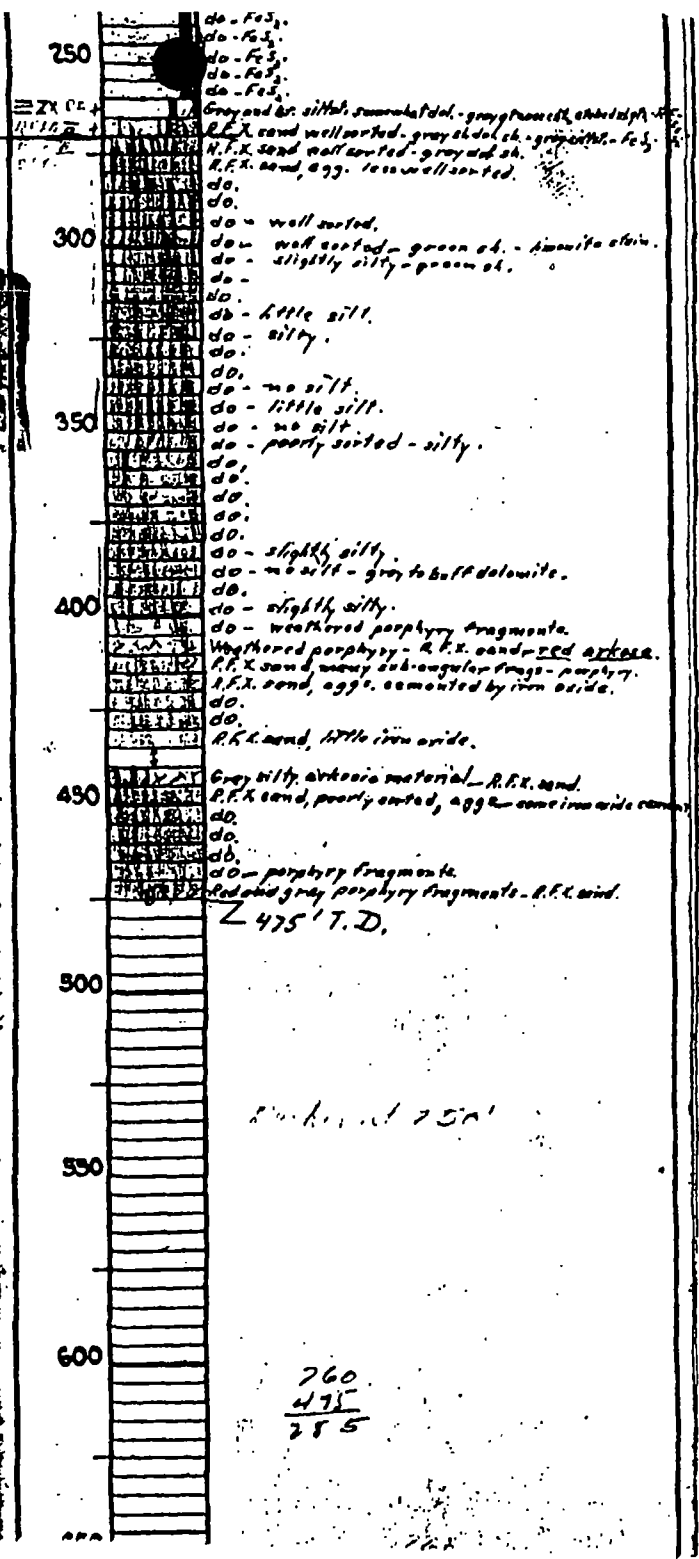 do - FeS₂.
do - FeS₂.
250 do - FeS₂.
do - FeS₂.
do - FeS₂.
Gray and br. siltst. somewhat dol. - gray
R.F.X. sand well sorted - gray sh dol. sh. - gray siltst. - FeS₂
R.F.X. sand well sorted - gray dol. sh.
R.F.X. sand, agg. less well sorted.
do.
do.
do - well sorted.
300 do - well sorted - green sh. - limonite stain.
do - slightly silty - green sh.
do -
do.
do - little silt.
do - silty.
do.
do.
do - no silt.
do - little silt.
350 do - no silt
do - poorly sorted - silty.
do.
do.
do.
do.
do.
do - slightly silty.
do - no silt - gray to buff dolomite.
do.
400 do - slightly silty.
do - weathered porphyry fragments.
Weathered porphyry - R.F.X. sand - red arkose.
R.F.X. sand, many sub-angular frags - porphyry.
R.F.X. sand, aggs. cemented by iron oxide.
do.
do.
R.F.X. sand, little iron oxide.
Gray silty, arkosic material - R.F.X. sand.
450 R.F.X. sand, poorly sorted, aggs - some iron oxide cement
do.
do.
do.
do - porphyry fragments.
Red and gray porphyry fragments - R.F.X. sand.
475' T.D.
500
550
600
760
475
285